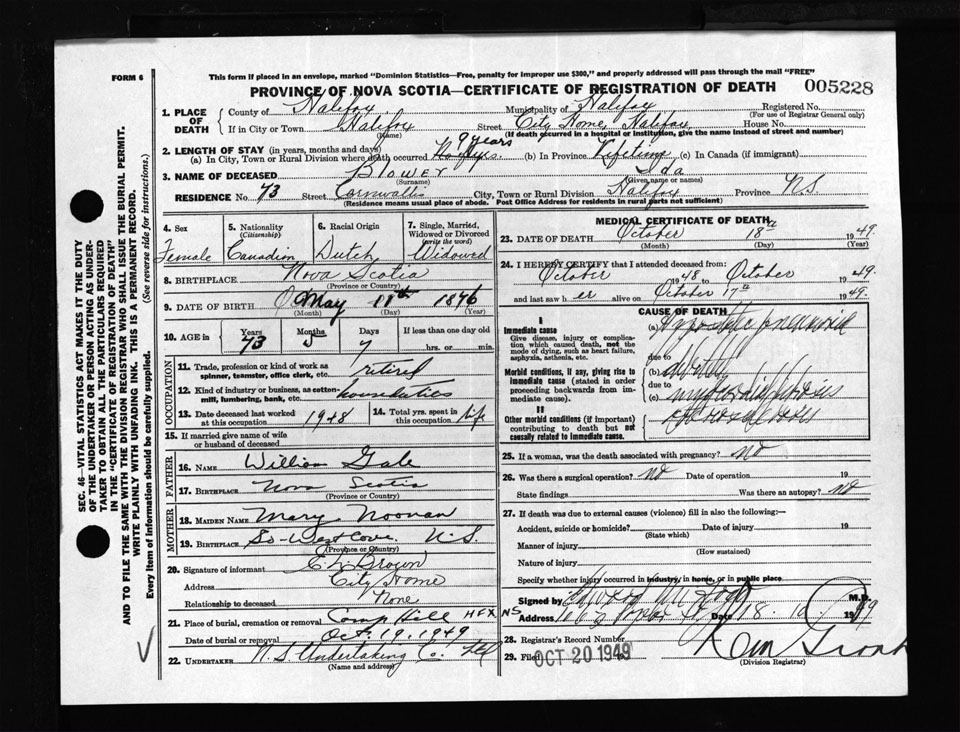 FORM 6
This form if placed in an envelope, marked "Dominion Statistics—Free, penalty for improper use $300," and properly addressed will pass through the mail "FREE"
PROVINCE OF NOVA SCOTIA—CERTIFICATE OF REGISTRATION OF DEATH 005228
SEC. 46—VITAL STATISTICS ACT MAKES IT THE DUTY
OF THE UNDERTAKER OR PERSON ACTING AS UNDER-
TAKER TO OBTAIN ALL THE PARTICULARS REQUIRED
IN THE "CERTIFICATE OF REGISTRATION OF DEATH"
AND TO FILE THE SAME WITH THE DIVISION REGISTRAR WHO SHALL ISSUE THE BURIAL PERMIT.
WRITE PLAINLY WITH UNFADING INK. THIS IS A PERMANENT RECORD.
Every item of information should be carefully supplied. (See reverse side for instructions.)
1. PLACE OF DEATH County of Halifax Municipality of Halifax Registered No.
(For use of Registrar General only)
If in City or Town Halifax Street City Home, Halifax House No.
(Name) (If death occurred in a hospital or institution, give the name instead of street and number)
2. LENGTH OF STAY (in years, months and days) 9 years
(a) In City, Town or Rural Division where death occurred (b) In Province Lifetime (c) In Canada (if immigrant)
3. NAME OF DECEASED Blower Ida
(Surname) (Given name or names)
RESIDENCE No. 73 Street Cornwallis City, Town or Rural Division Halifax Province N.S.
(Residence means usual place of abode. Post Office Address for residents in rural parts not sufficient)
4. Sex Female
5. Nationality (Citizenship) Canadian
6. Racial Origin Dutch
7. Single, Married, Widowed or Divorced (write the word) Widowed
8. BIRTHPLACE Nova Scotia
(Province or Country)
9. DATE OF BIRTH May 11th 1876
(Month) (Day) (Year)
10. AGE in Years 73 Months 5 Days 7 If less than one day old
hrs. or min.
OCCUPATION
11. Trade, profession or kind of work as spinner, teamster, office clerk, etc. retired
12. Kind of industry or business, as cotton-mill, lumbering, bank, etc. house duties
13. Date deceased last worked at this occupation 1948
14. Total yrs. spent in this occupation life
15. If married give name of wife or husband of deceased
FATHER
16. NAME William Gale
17. BIRTHPLACE Nova Scotia
(Province or Country)
MOTHER
18. MAIDEN NAME Mary Noonan
19. BIRTHPLACE So-West Cove. N.S.
(Province or Country)
20. Signature of informant E. L. Brown
Address City Home
Relationship to deceased None
21. Place of burial, cremation or removal Camp Hill HFX NS
Date of burial or removal Oct. 19, 1949
22. UNDERTAKER N.S. Undertaking Co. Ltd
(Name and address)
MEDICAL CERTIFICATE OF DEATH
23. DATE OF DEATH October 18th 1949.
(Month) (Day) (Year)
24. I HEREBY CERTIFY that I attended deceased from:
October 1948 to October 1949.
and last saw her alive on October 17th 1949.
CAUSE OF DEATH
I
Immediate cause
Give disease, injury or complication, which caused death, not the mode of dying, such as heart failure, asphyxia, asthenia, etc.
(a) Hypostatic pneumonia
due to
Morbid conditions, if any, giving rise to immediate cause (stated in order proceeding backwards from immediate cause).
(b)
due to
(c)
II
Other morbid conditions (if important) contributing to death but not causally related to immediate cause.
25. If a woman, was the death associated with pregnancy? No
26. Was there a surgical operation? No Date of operation 19
State findings Was there an autopsy? No
27. If death was due to external causes (violence) fill in also the following:—
Accident, suicide or homicide? Date of injury 19
(State which)
Manner of injury
(How sustained)
Nature of injury
Specify whether injury occurred in industry, in home, or in public place
Signed by M.D.
Address Date 18. 10. 1949
28. Registrar's Record Number
29. Filed OCT 20 1949
(Division Registrar)